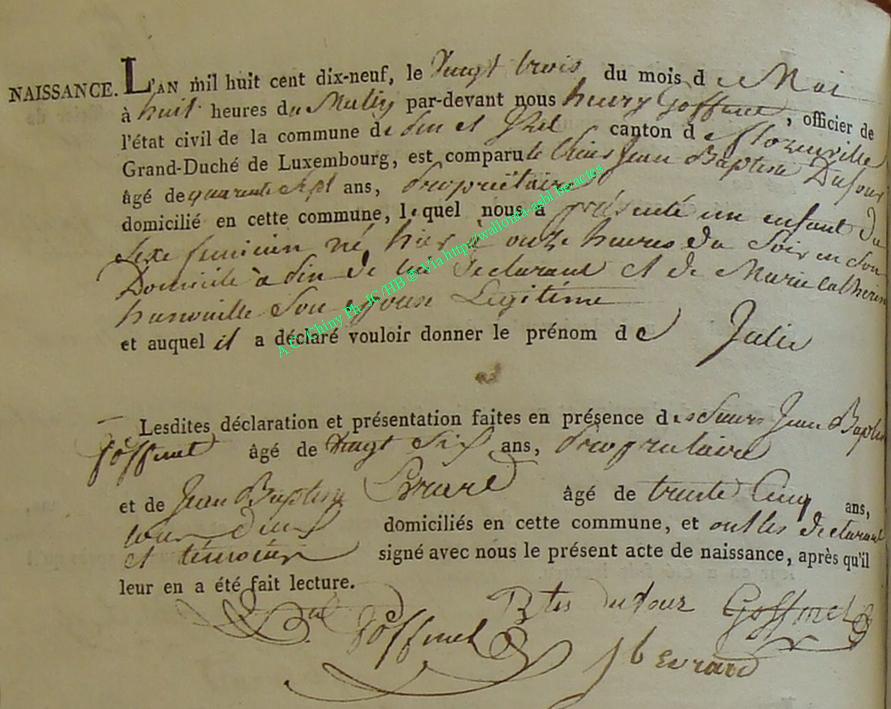 NAISSANCE. L'AN mil huit cent dix-neuf, le Vingt trois du mois de Mai
à huit heures du Matin par-devant nous henry Goffinet, officier de
l'état civil de la commune de Sin et Izel canton de florenville
Grand-Duché de Luxembourg, est comparu le Sieur Jean Baptiste Dufour
âgé de quarante sept ans, Propriétaire
domicilié en cette commune, lequel nous a présenté un enfant du
Sexe feminin né hier à onze heures du Soir en Son
Domicile à Sin de lui declarant et de Marie Catherine
Son epouse Legitime
et auquel il a déclaré vouloir donner le prénom de Julie
Lesdites déclaration et présentation faites en présence des Sieurs Jean Baptiste
Goffinet âgé de Vingt Six ans, Proprietaire
et de Jean Baptiste Evrard âgé de trente Cinq ans,
tous deux domiciliés en cette commune, et ont les declarant
et témoins signé avec nous le présent acte de naissance, après qu'il
leur en a été fait lecture.
Btes dufour Goffinet
Goffinet
Jb Evrard